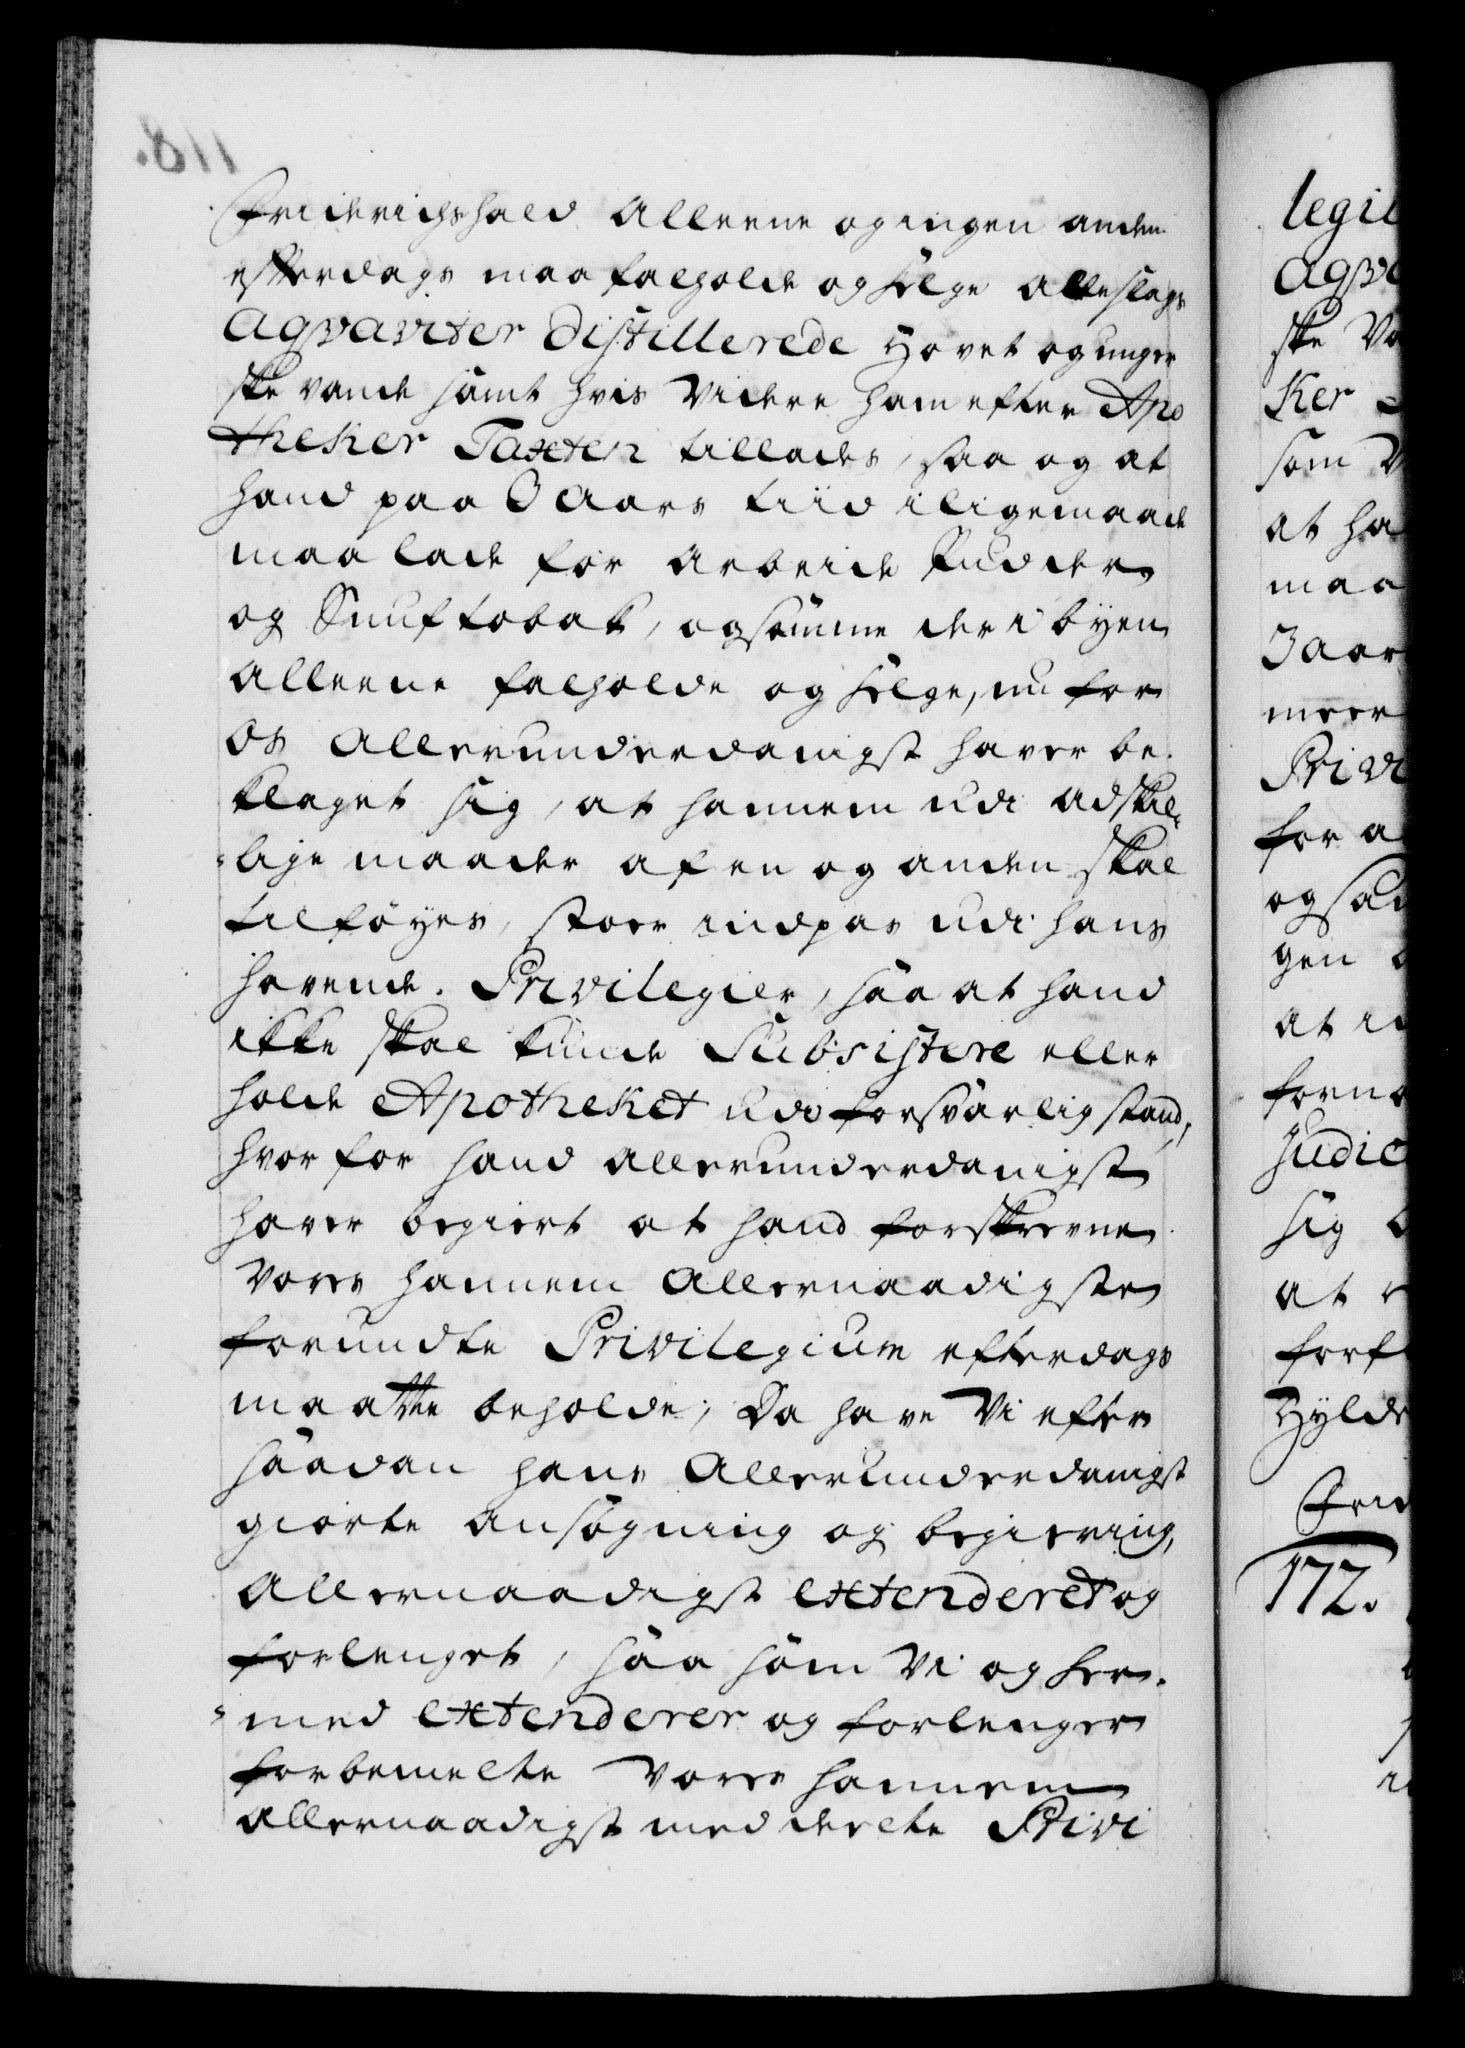 Friderichshald Alleene og ingen anden
efterdags maa falholde og selge alle slags
Aqvaviter Distillerede Hovet og unger
ske vande samt hvis Videre ham efter Apo
theker Taxten tillades, saa og at
hand paa 3 Aars tiid iligemaade
maa lade for Arbeide Pudder
og Snuftobak, og samme der i byen
Alleene falholde og selge, nu for
Os Allerunderdanigst haver be-
klaget sig, at hannem udi Adskil-
lige maader af en og anden skal
tilføyes, stoer indpas udi hans
havende Privilegier, saa at hand
ikke skal kunde Subsistere eller
holde Apotheket udi forsvarlig stand,
hvorfor hand allerunderdanigst
haver begiert at hand forskrevne
Vores hannem Allernaadigste
forundte Privilegium efterdags
maatte beholde; Da have Vi efter
saadan hans Allerunderdanigst
giorte ansøgning og begiering,
Allernaadigst extenderet og
forlenget, saa som Vi og her-
med extenderer og forlenger
forbemelte Vores hannem
allernaadigst meddeelte Privi
legil
Aqva
ske Va
Ker
som V
at ha
maa
3 aar
meer
Privi
for a
og saa
gen
at in
forne
Judic
sig
at
forf
Hylde
Frid
172.